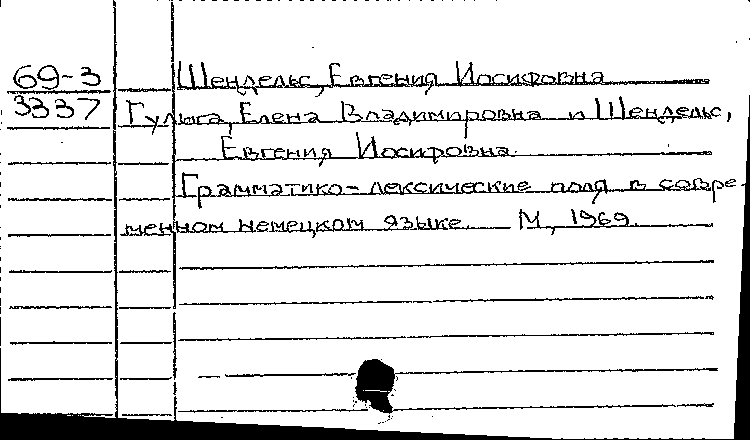 69-3 Шендельс, Евгения Иосифовна
3337 Гулыга, Елена Владимировна и Шендельс,
Евгения Иосифовна.
Грамматико-лексические поля в совре-
менном немецком языке. М., 1969.